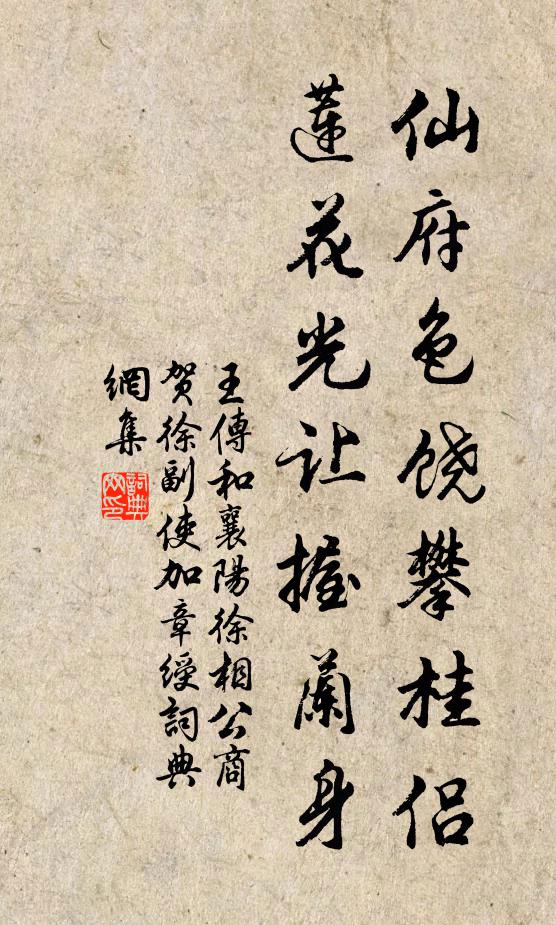 仙府色饶攀桂侣
莲花光让握兰身
王傳和襄陽徐相公商
贺徐副使加章绶詞典
網集
詞典網印